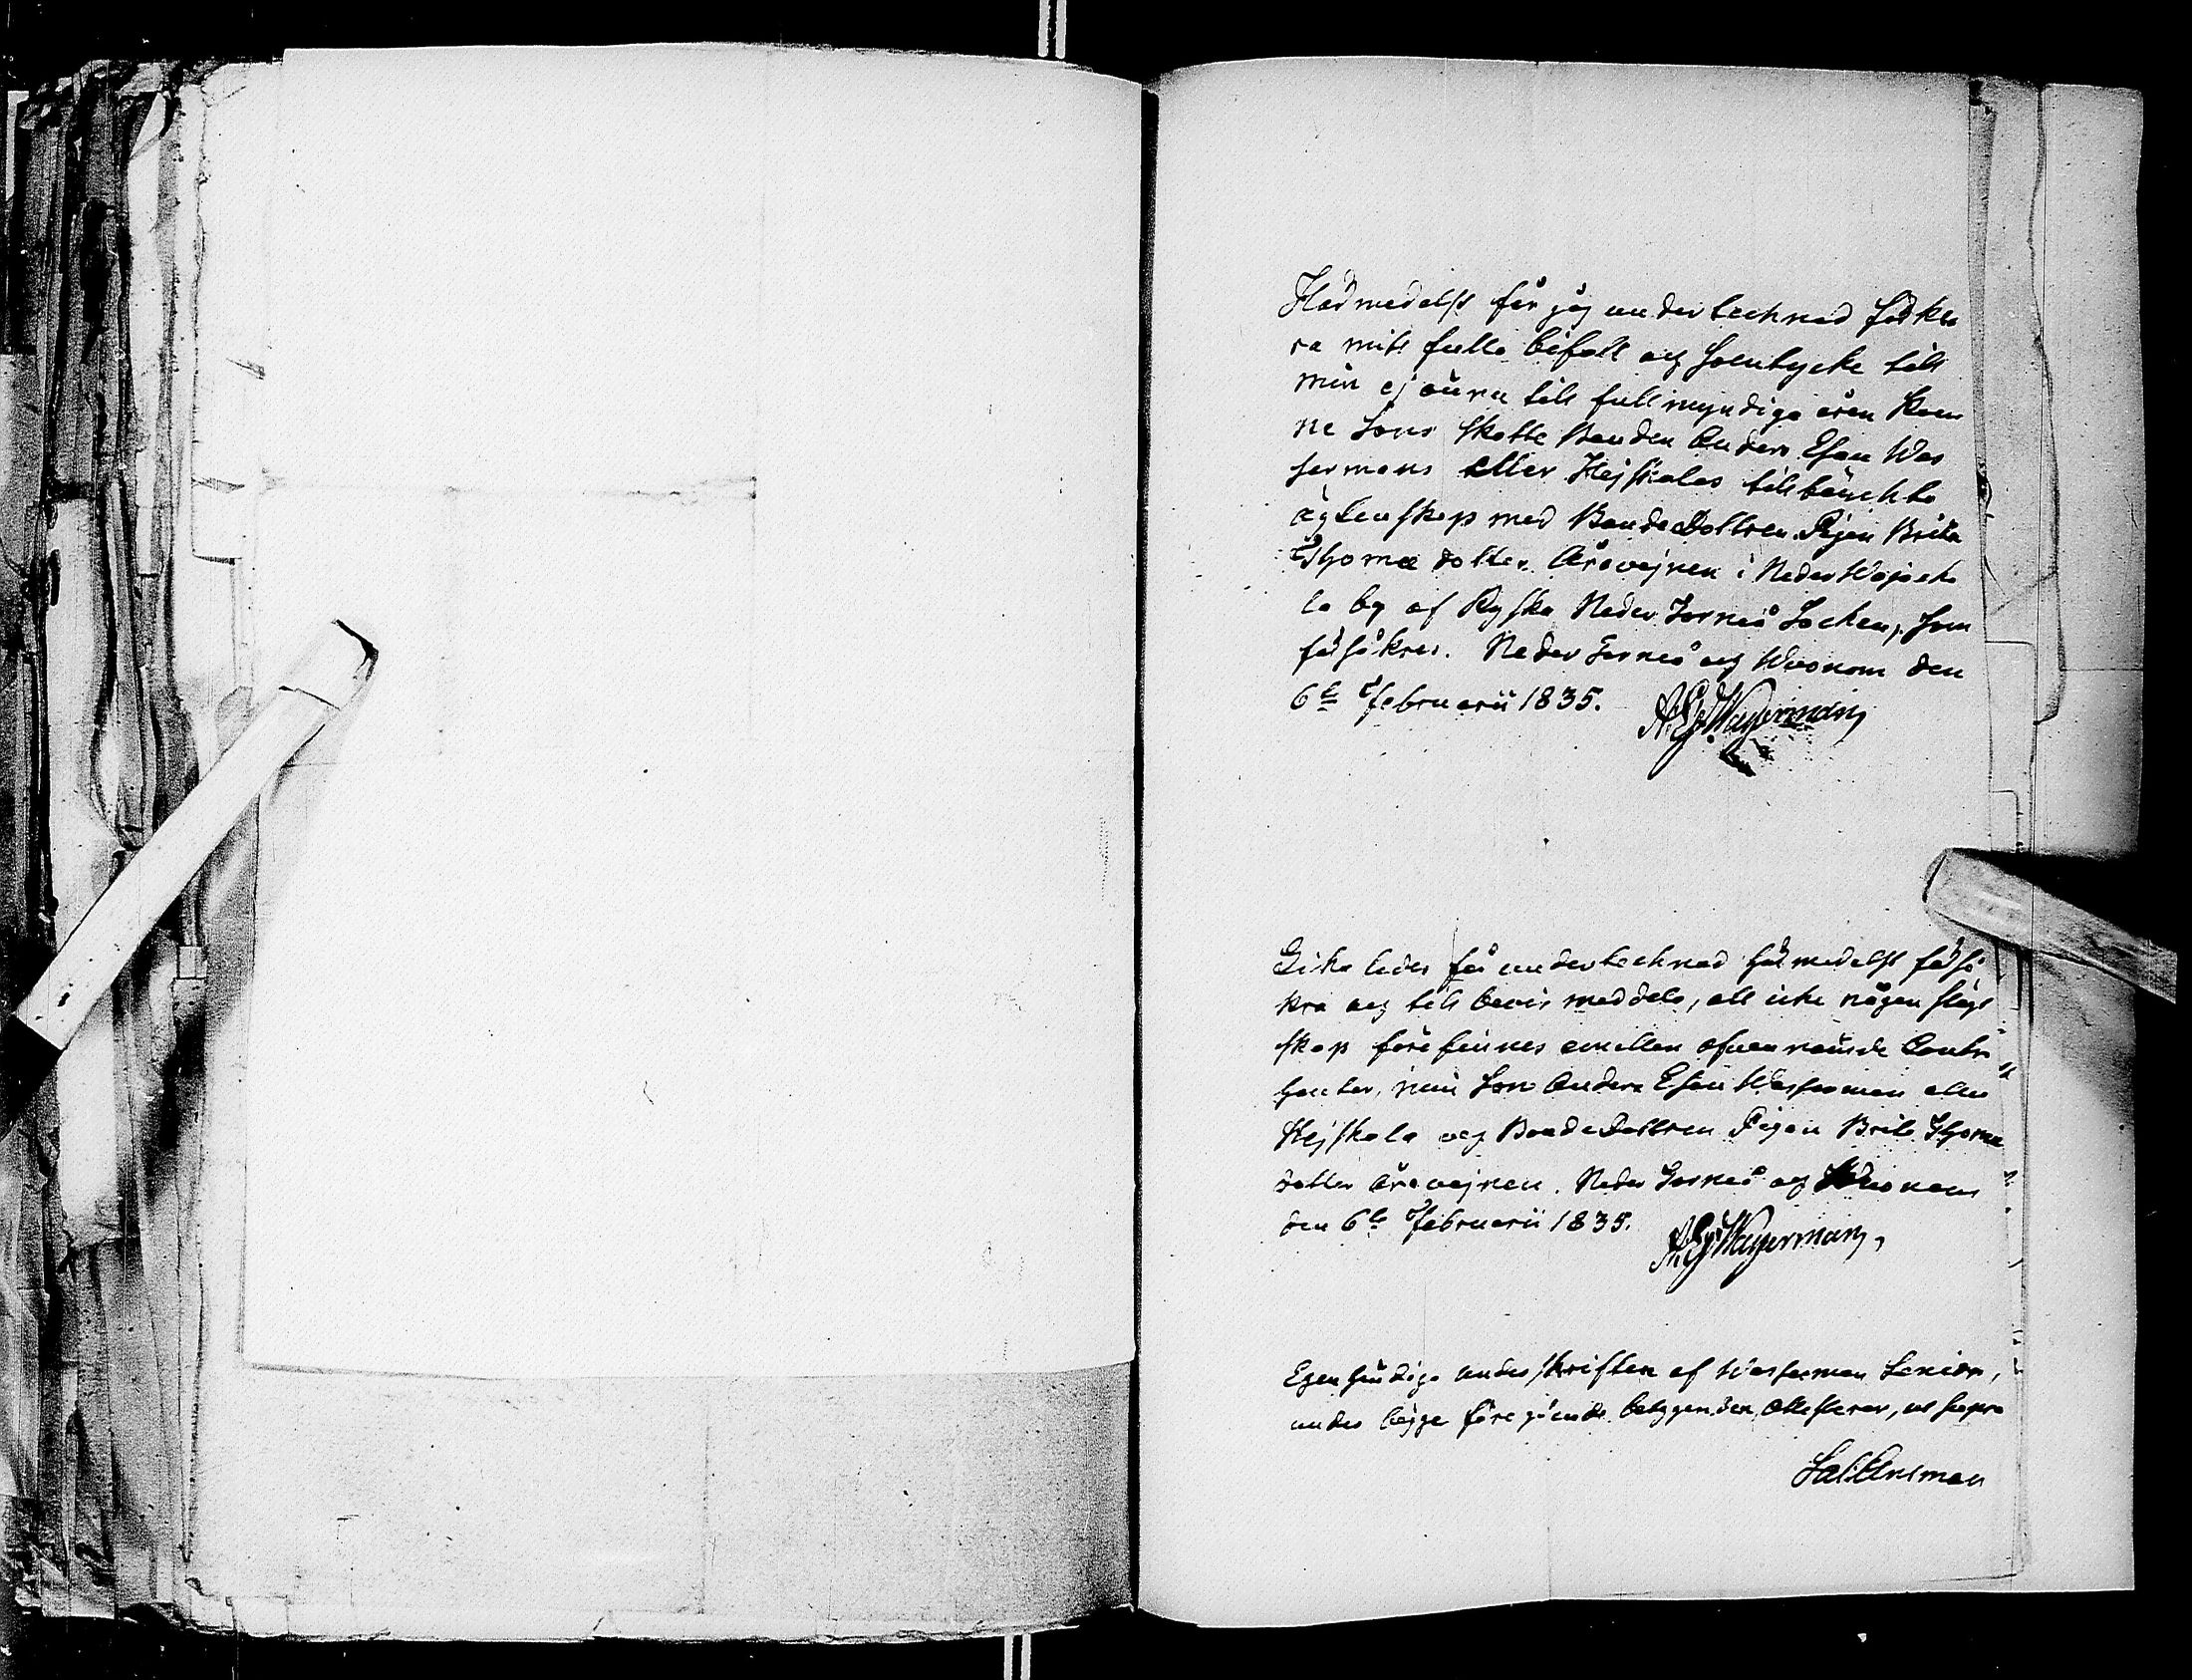 Härmedelst får jag undertecknad förkla
ra mitt fulla bifall och samtycke till
min ej ännu till fullmyndiga åren kom
ne Sons Skatte Bonden Anders Esau Was
sermans eller Kejskalas tilltänckta
ägtenskap med BondeDottren Pigan Brita
Thomædotter Åravejnen i Neder Wojacka
la by af Ryska Neder Torneå Sochen, som
försäkras. Neder Torneå och Wuonom den
6te Februarii 1835. A. Es: Wasserman
Lika ledes får undertecknad härmedelst försä
kra och till bevis meddela, att icke någon slägt
skap förefinnes emellan ofvannämde Contra
henter, min Son Anders Esau Wasserman eller
Kejskala och BondeDottren Pigan Brita Thomæ
dotter Åravejnen. Neder Torneå och Wuonom
den 6te Februarii 1835. A. Es: Wasserman,
Egenhändiga underskriften af Wasserman Senior,
under begge föregående betygenden attesterar, ut supra
Sal. Ansman